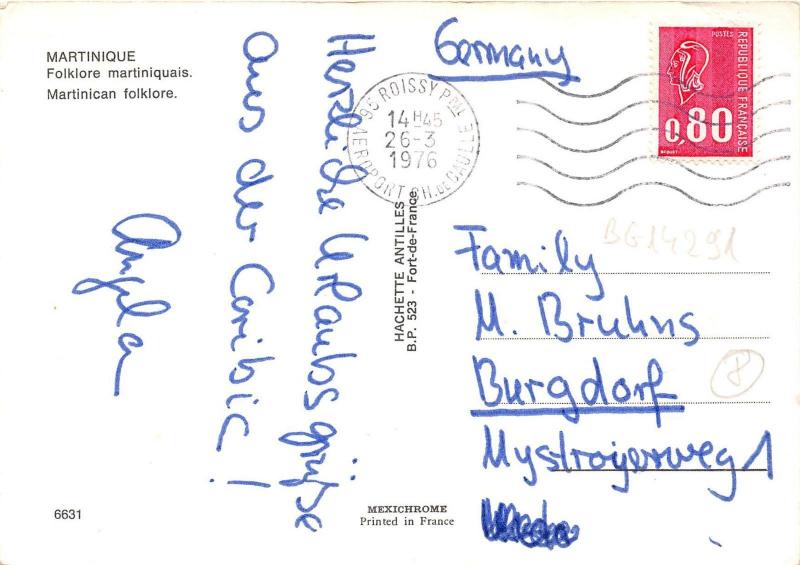 MARTINIQUE
Folklore martiniquais.
Martinican folklore.
Herzliche Urlaubsgrüße
aus der Caribic!
Angela
6631
HACHETTE ANTILLES
B.P. 523 - Fort-de-France
MEXICHROME
Printed in France
Germany
95 ROISSY PAL
14H45
26-3
1976
AEROPORT CH. DE GAULLE
POSTES
REPUBLIQUE FRANÇAISE
0,80
BEQUET
BG14291
Family
M. Bruhns
Burgdorf
8
Mystroyerweg 1